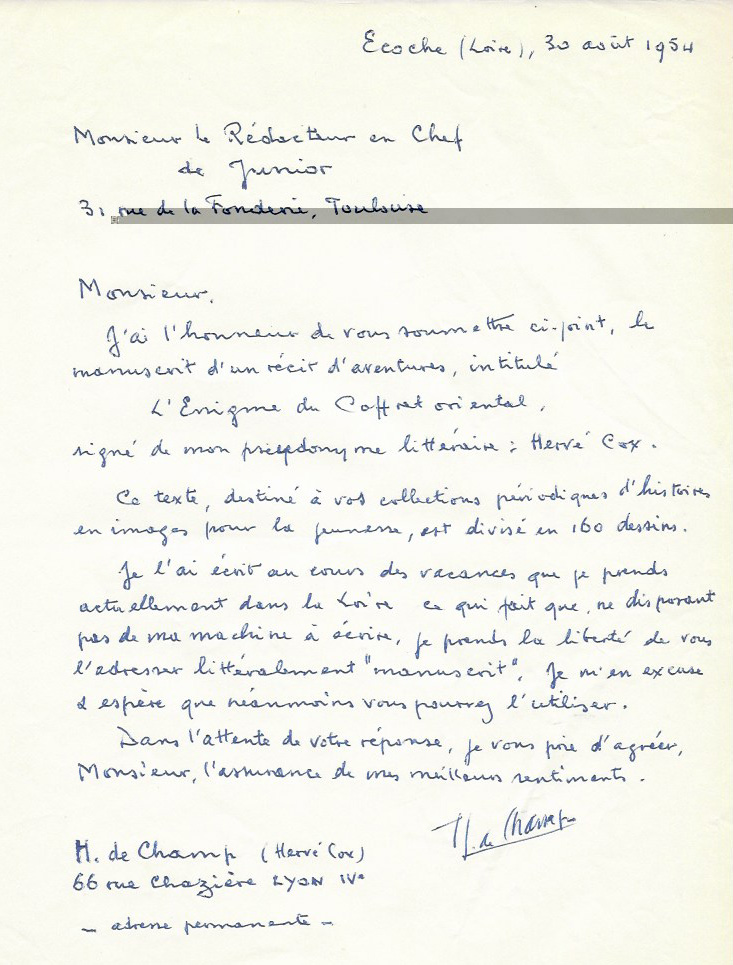 Ecoche (Loire), 30 août 1954
Monsieur le Rédacteur en Chef
de Junior
31 rue de la Fonderie, Toulouse
Monsieur,
J'ai l'honneur de vous soumettre ci-joint, le
manuscrit d'un récit d'aventures, intitulé
L'Enigme du Coffret oriental,
signé de mon pseudonyme littéraire : Hervé Cox.
Ce texte, destiné à vos collections périodiques d'histoires
en images pour la jeunesse, est divisé en 160 dessins.
Je l'ai écrit au cours des vacances que je prends
actuellement dans la Loire ce qui fait que, ne disposant
pas de ma machine à écrire, je prends la liberté de vous
l'adresser littéralement "manuscrit". Je m'en excuse
& espère que néanmoins vous pourrez l'utiliser.
Dans l'attente de votre réponse, je vous prie d'agréer,
Monsieur, l'assurance de mes meilleurs sentiments.
H. de Champ
H. de Champ (Hervé Cox)
66 rue Chazière LYON IVe
- adresse permanente -